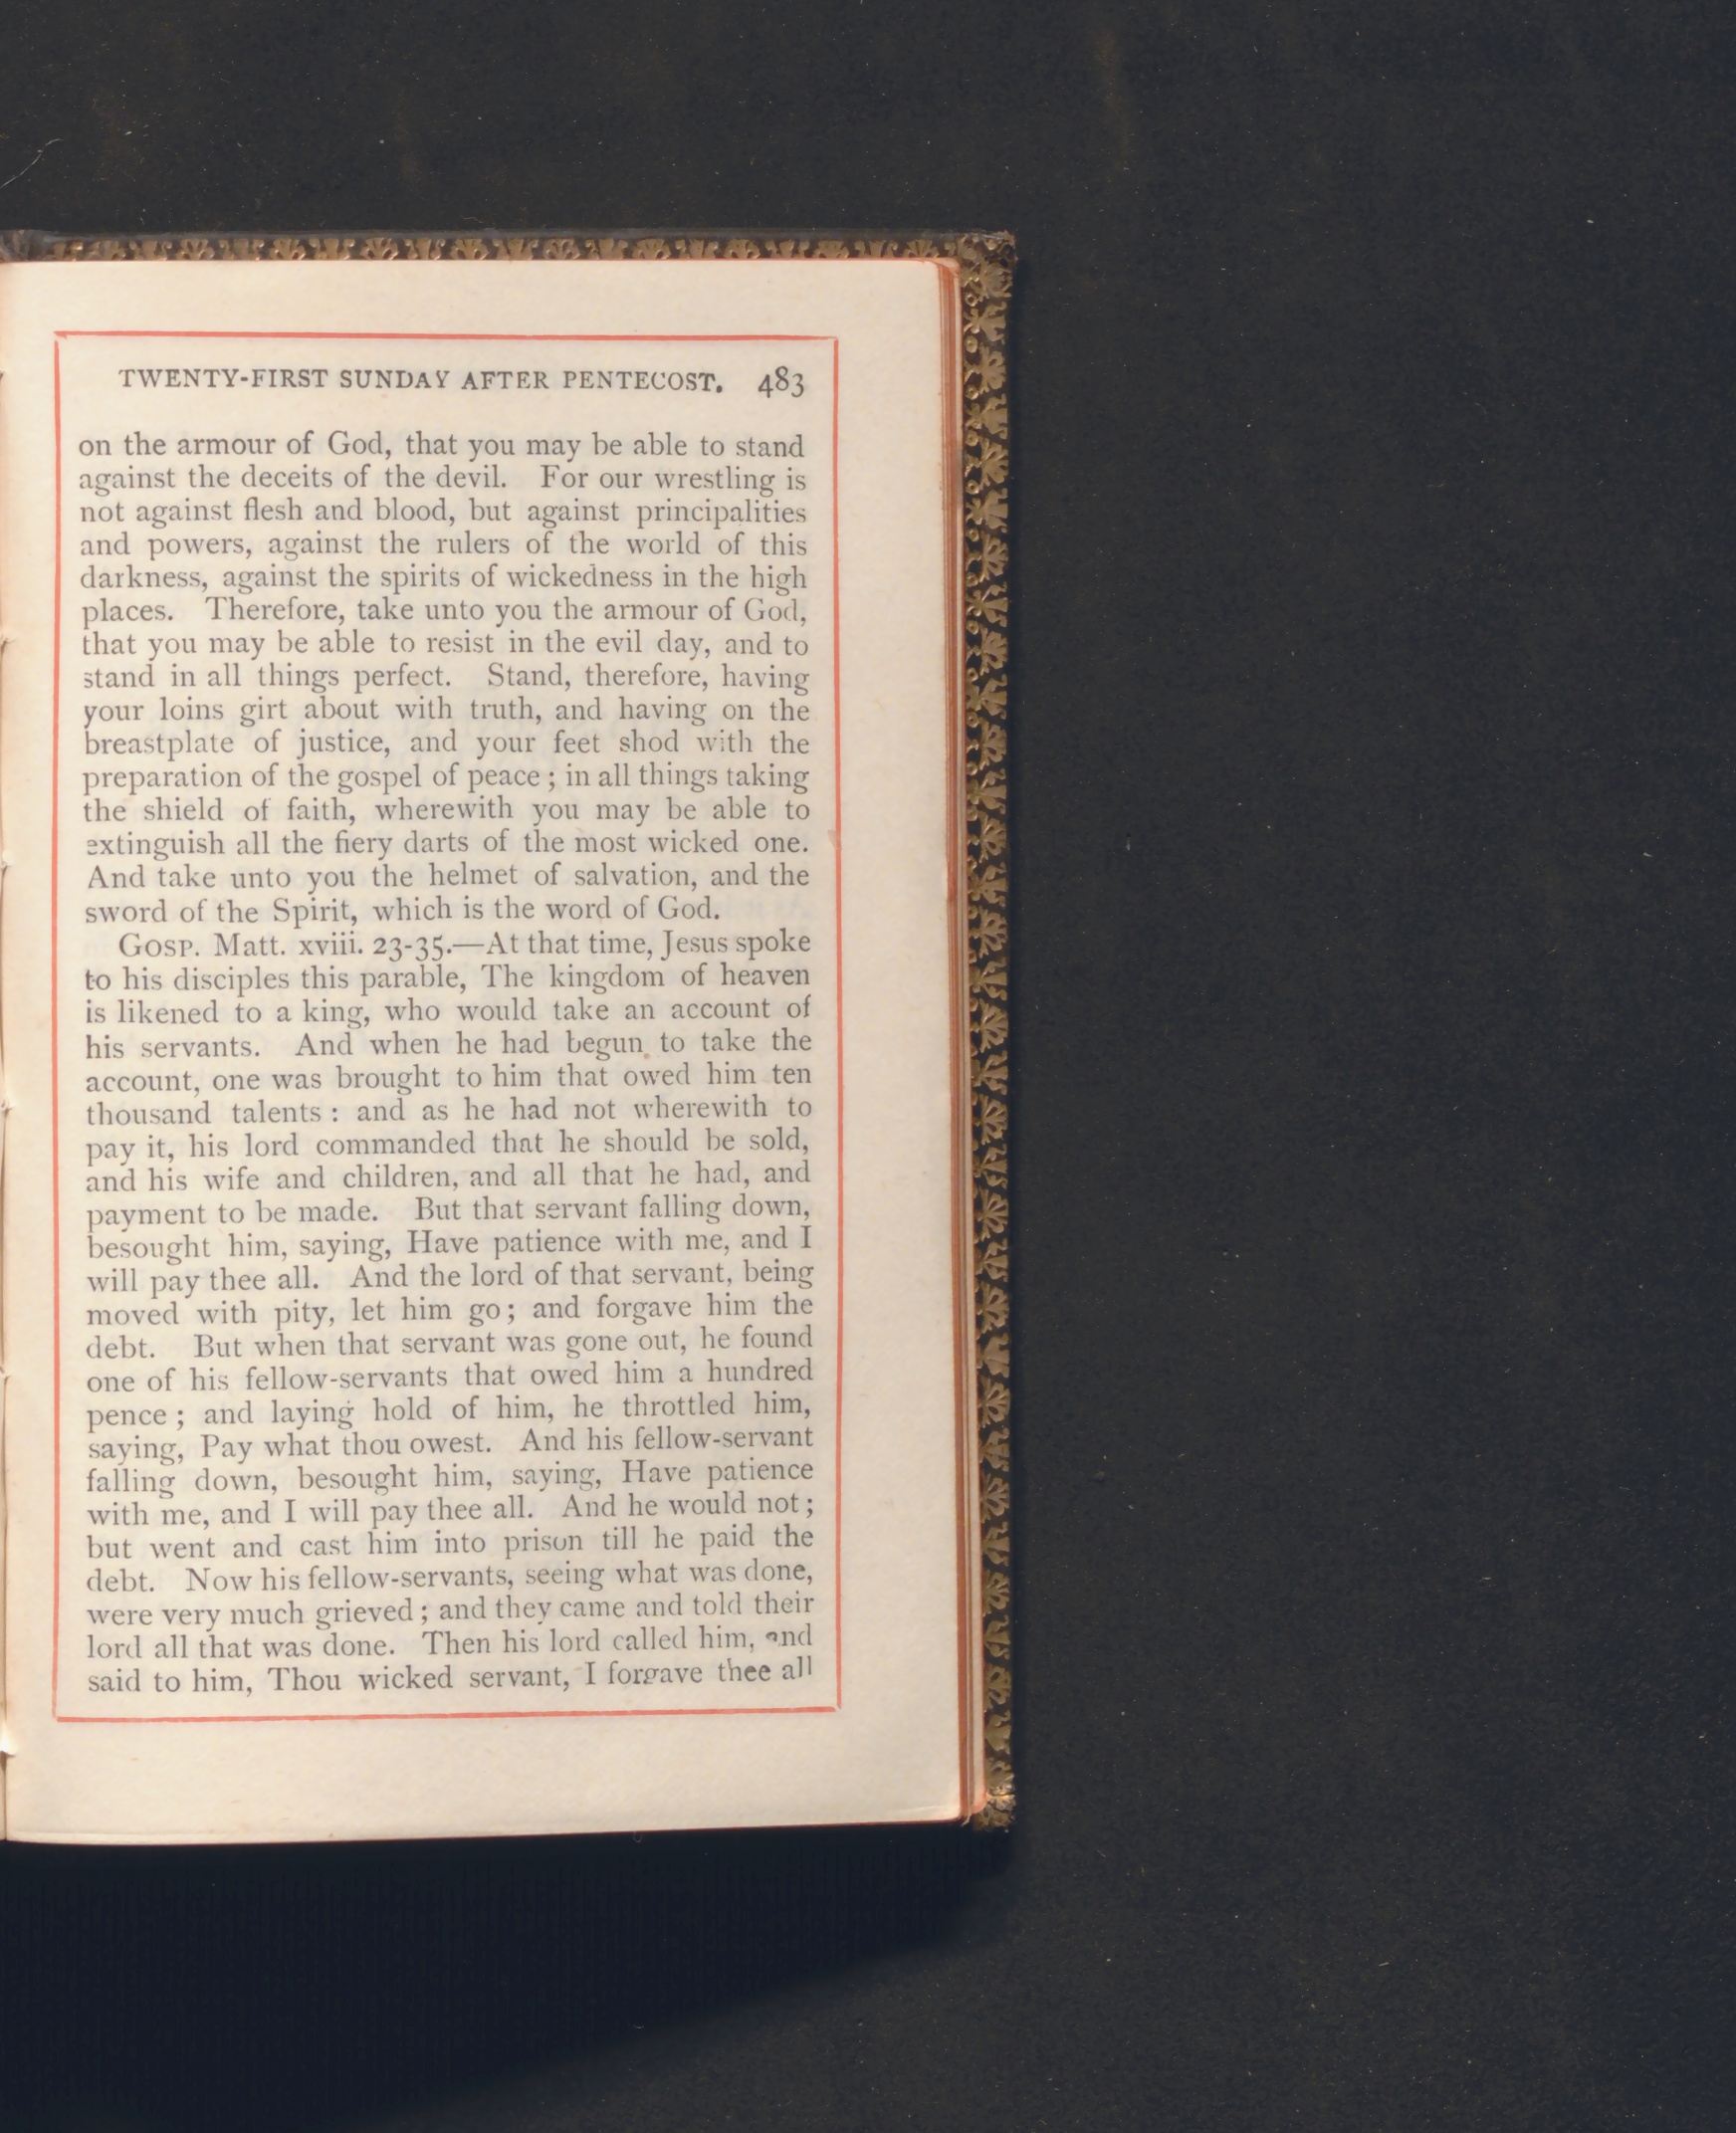 TWENTY-FIRST SUNDAY AFTER PENTECOST. 483
on the armour of God, that you may be able to stand
against the deceits of the devil. For our wrestling is
not against flesh and blood, but against principalities
and powers, against the rulers of the world of this
darkness, against the spirits of wickedness in the high
places. Therefore, take unto you the armour of God,
that you may be able to resist in the evil day, and to
stand in all things perfect. Stand, therefore, having
your loins girt about with truth, and having on the
breastplate of justice, and your feet shod with the
preparation of the gospel of peace ; in all things taking
the shield of faith, wherewith you may be able to
extinguish all the fiery darts of the most wicked one.
And take unto you the helmet of salvation, and the
sword of the Spirit, which is the word of God.
GOSP. Matt. xviii. 23-35.—At that time, Jesus spoke
to his disciples this parable, The kingdom of heaven
is likened to a king, who would take an account of
his servants. And when he had begun to take the
account, one was brought to him that owed him ten
thousand talents : and as he had not wherewith to
pay it, his lord commanded that he should be sold,
and his wife and children, and all that he had, and
payment to be made. But that servant falling down,
besought him, saying, Have patience with me, and I
will pay thee all. And the lord of that servant, being
moved with pity, let him go ; and forgave him the
debt. But when that servant was gone out, he found
one of his fellow-servants that owed him a hundred
pence ; and laying hold of him, he throttled him,
saying, Pay what thou owest. And his fellow-servant
falling down, besought him, saying, Have patience
with me, and I will pay thee all. And he would not ;
but went and cast him into prison till he paid the
debt. Now his fellow-servants, seeing what was done,
were very much grieved ; and they came and told their
lord all that was done. Then his lord called him, and
said to him, Thou wicked servant, I forgave thee all